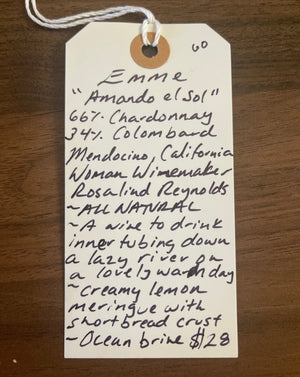 60
Emme
"Amando el Sol"
66% Chardonnay
34% Colombard
Mendocino, California
Woman Winemaker
Rosalind Reynolds
~ALL NATURAL
~A wine to drink
inner tubing down
a lazy river on
a lovely warm day
~creamy lemon
meringue with
shortbread crust
~Ocean brine $28